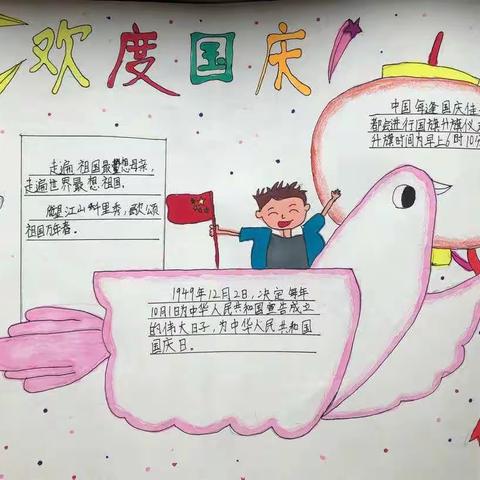 欢度国庆
走遍祖国最想母亲,
走遍世界最想祖国。
江山千里秀,歌颂
祖国万年春。
中国每逢国庆佳
都会进行国旗升旗仪
升旗时间为早上6时10
1949年12月2日,决定每年
10月1日为中华人民共和国宣告成立
的伟大日子,为中华人民共和国
国庆日。